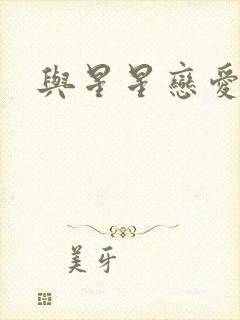 與星星戀愛
美牙